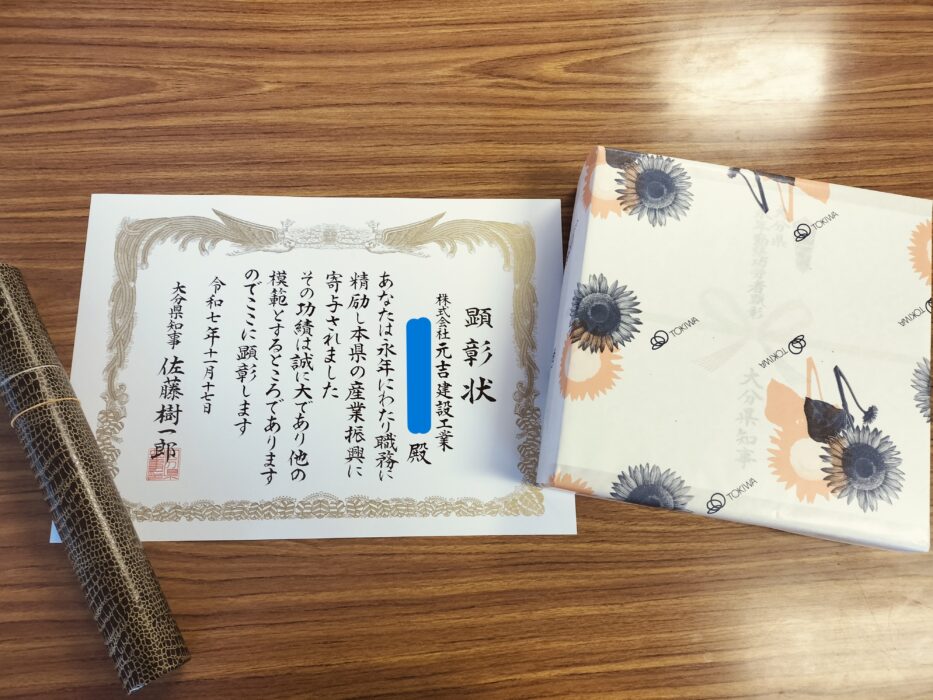 顕彰状
株式会社元吉建設工業
殿
あなたは永年にわたり職務に
精励し本県の産業振興に
寄与されました
その功績は誠に大であり他の
模範とするところであります
のでここに顕彰します
令和七年十一月十七日
大分県知事 佐藤樹一郎
TOKIWA
TOKIWA
TOKIWA
TOKIWA
TOKIWA
大分県知事